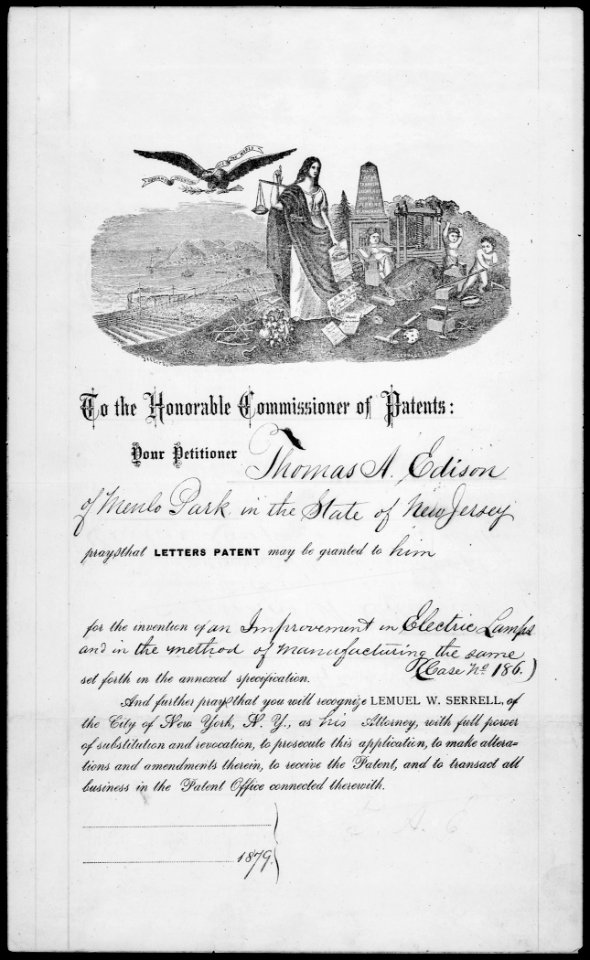 To the Honorable Commissioner of Patents:
Your Petitioner Thomas A. Edison
of Menlo Park in the State of New Jersey
prays that LETTERS PATENT may be granted to him
for the invention of an Improvement in Electric Lamps
and in the method of manufacturing the same
(Case No 186.)
set forth in the annexed specification.
And further prays that you will recognize LEMUEL W. SERRELL, of
the City of New York, N. Y., as his Attorney, with full power
of substitution and revocation, to prosecute this application, to make altera-
tions and amendments therein, to receive the Patent, and to transact all
business in the Patent Office connected therewith.
1879.